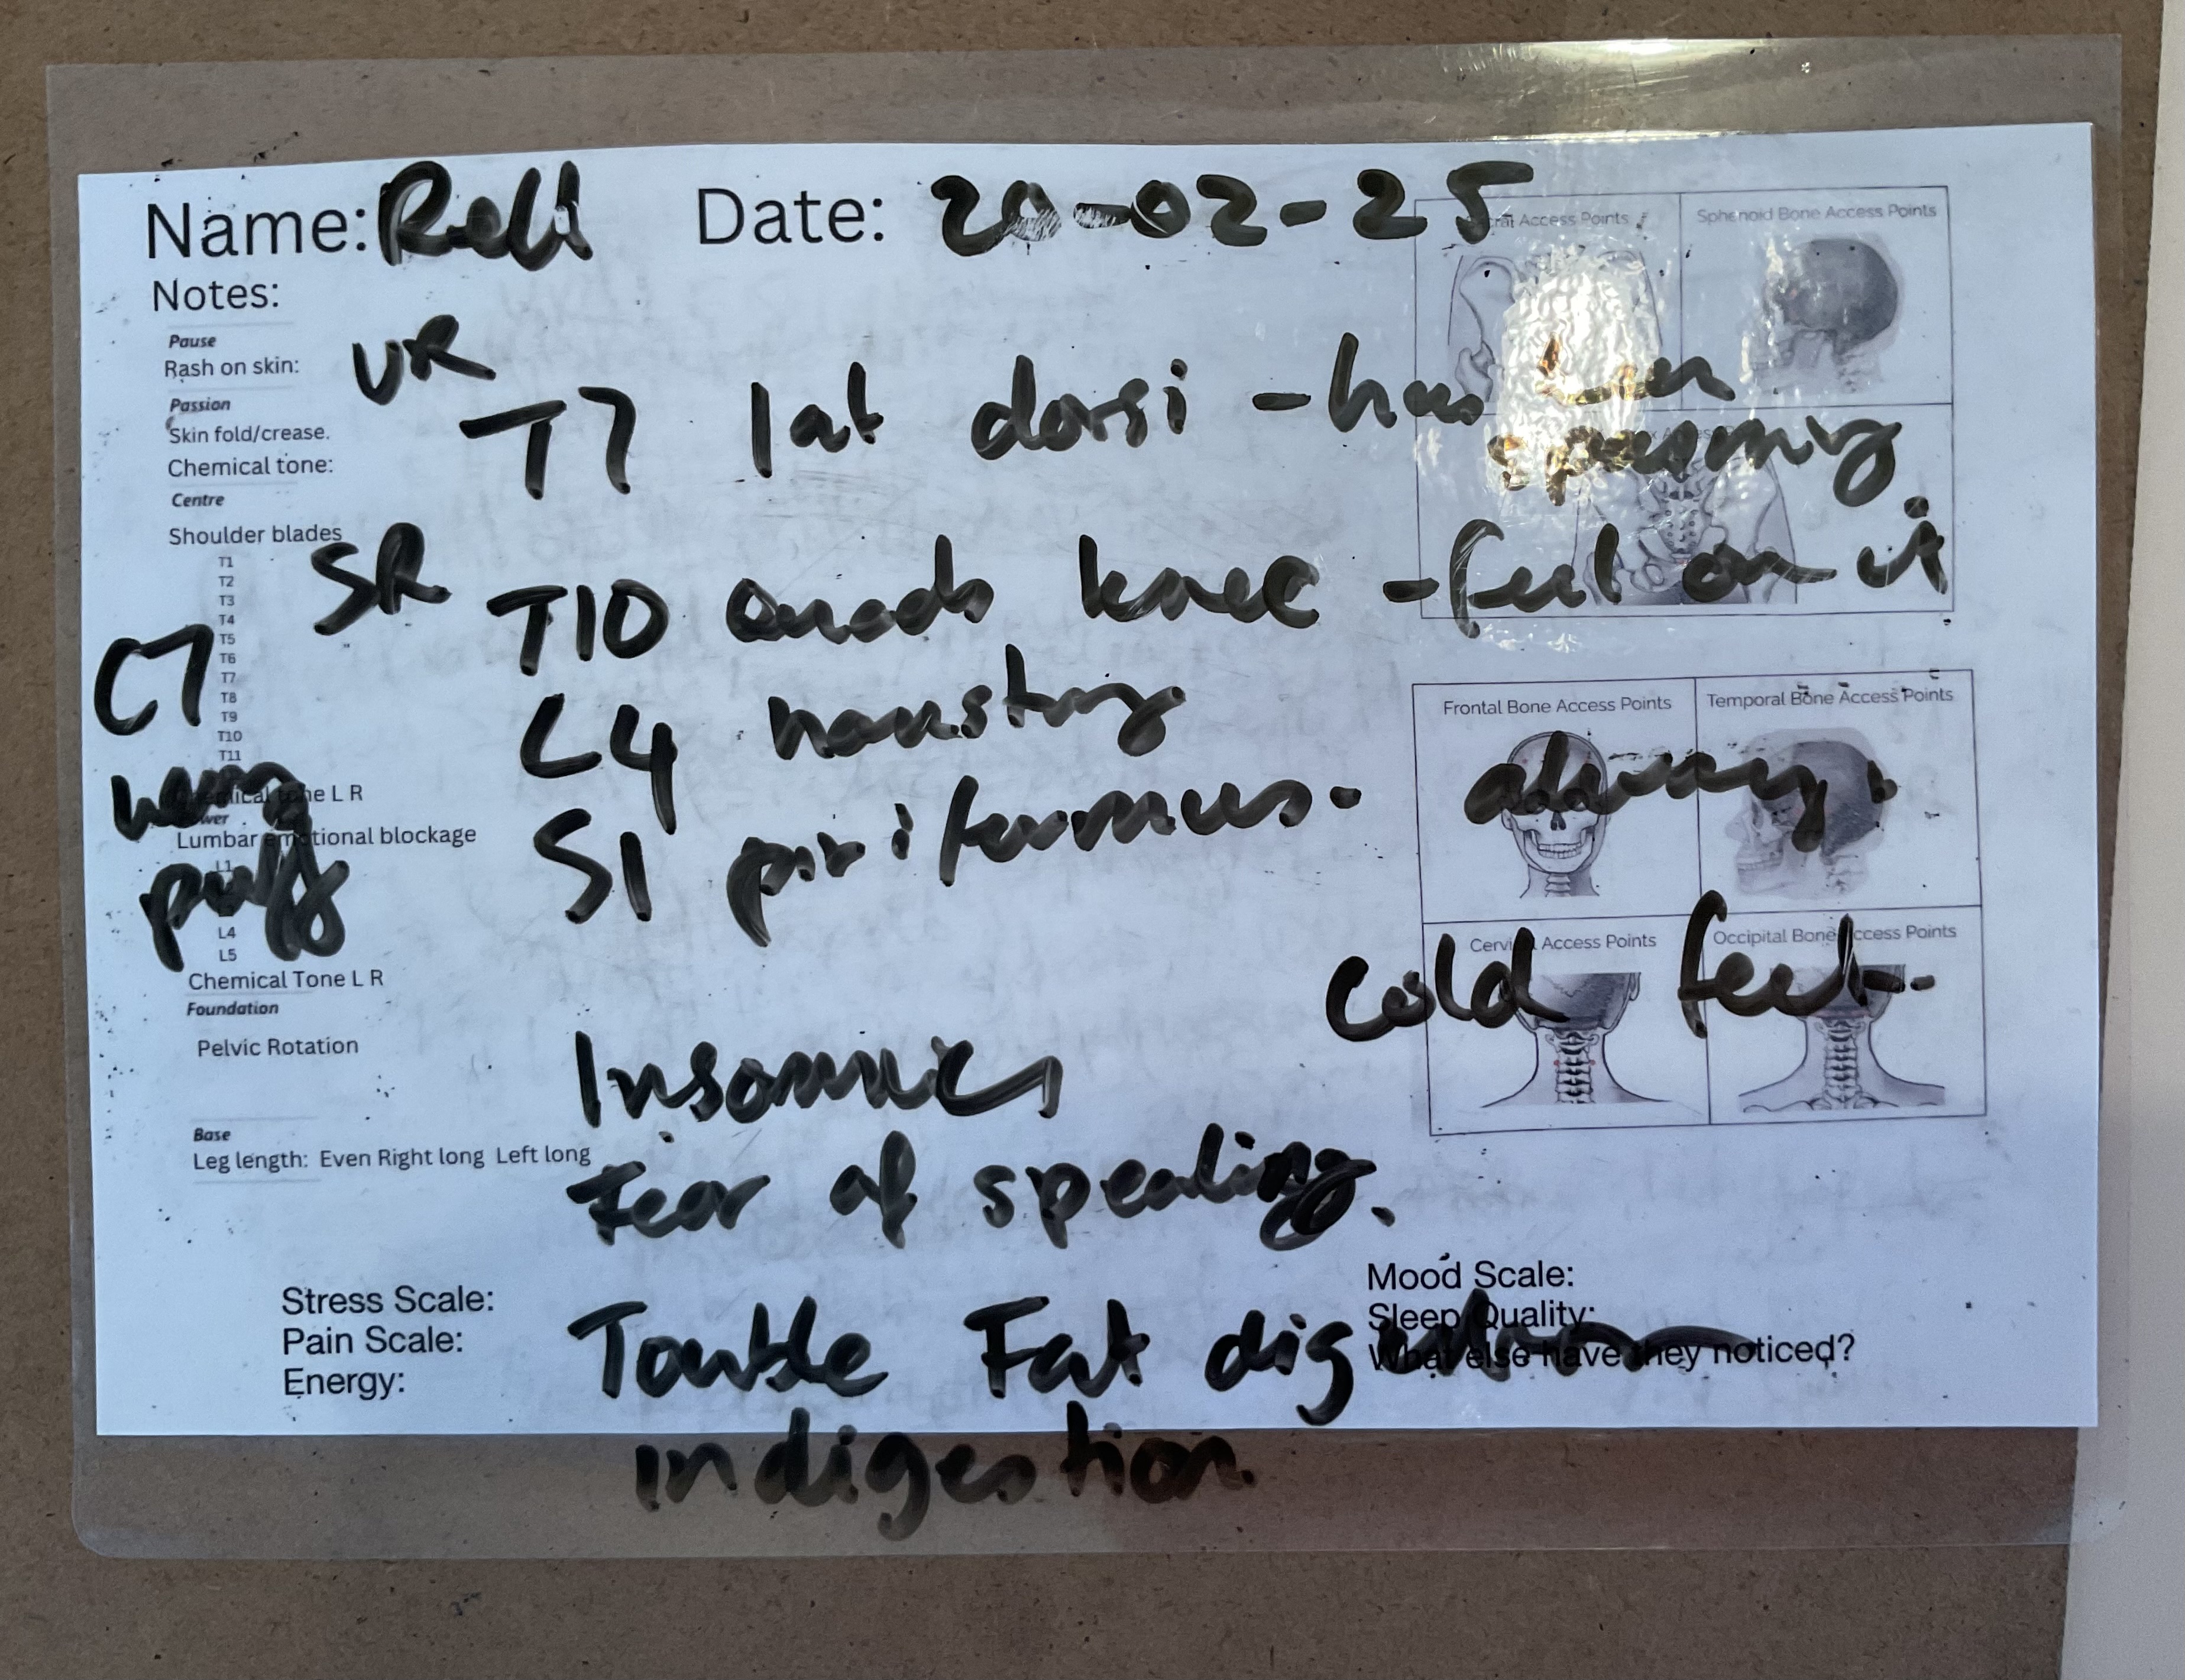 Name: Date: 20-02-25
Notes:
Sphenoid Bone Access Points
Access Points
Pause
Rash on skin:
UR
T7 lat dorsi - has been
spasming
Passion
Skin fold/crease.
Chemical tone:
Centre
Shoulder blades
SR T10 quads knee - feel on it
T1
T2
T3
T4
T5
T6
T7
T8
T9
T10
T11
C7
L4 hamstring
S1 piriformus. always.
tone L R
Lumbar emotional blockage
L4
L5
Chemical Tone L R
Foundation
Pelvic Rotation
Frontal Bone Access Points Temporal Bone Access Points
Access Points Occipital Bone Access Points
cold feet
Insomnia
Base
Leg length: Even Right long Left long
Fear of speaking.
Stress Scale:
Pain Scale:
Energy:
Mood Scale:
Sleep Quality:
What else have they noticed?
Fat
indigestion